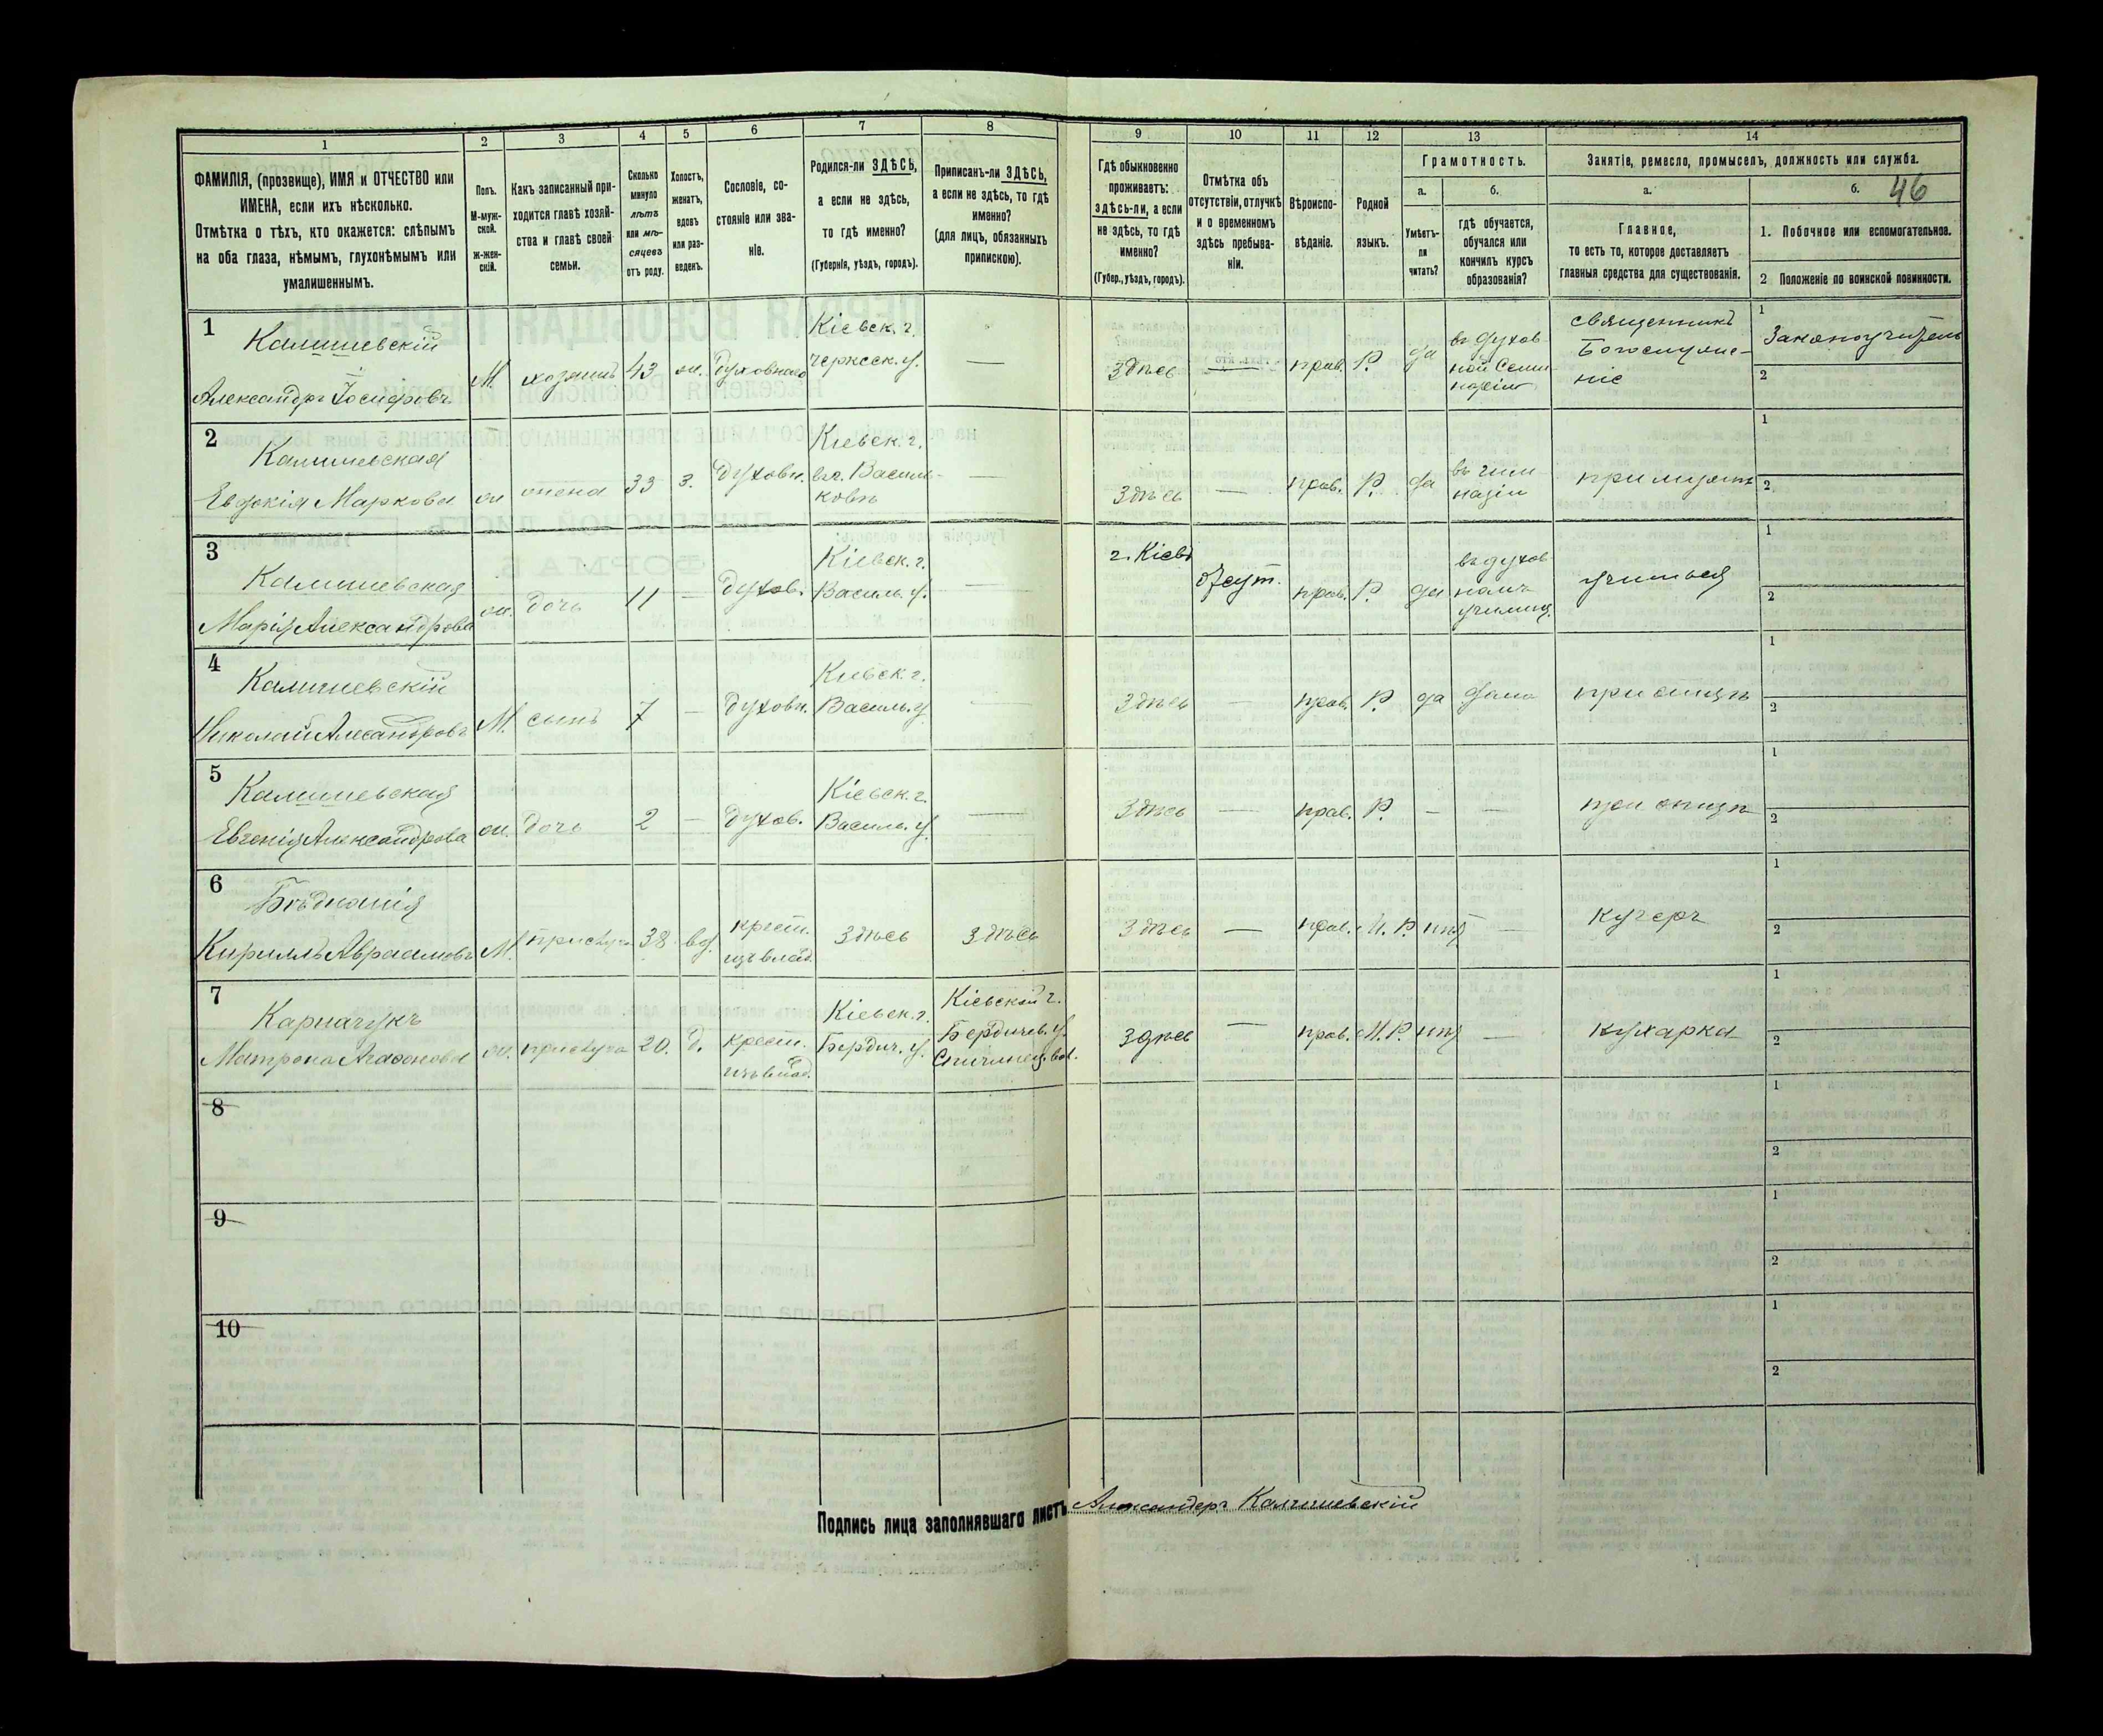 1
2
3
4
5
6
7
8
9
10
11
12
13
14
ФАМИЛІЯ, (прозвище), ИМЯ и ОТЧЕСТВО или
ИМЕНА, если ихъ нѣсколько.
Отмѣтка о тѣхъ, кто окажется: слѣпымъ
на оба глаза, нѣмымъ, глухонѣмымъ или
умалишеннымъ.
Полъ.
М-муж-
ской.
ж-жен-
скій.
Какъ записанный при-
ходится главѣ хозяй-
ства и главѣ своей
семьи.
Сколько
минуло
лѣтъ
или мѣ-
сяцевъ
отъ роду.
Холостъ,
женатъ,
вдовъ
или раз-
веденъ.
Сословіе, со-
стояніе или зва-
ніе.
Родился-ли ЗДѢСЬ,
а если не здѣсь,
то гдѣ именно?
(Губернія, уѣздъ, городъ).
Приписанъ-ли ЗДѢСЬ,
а если не здѣсь, то гдѣ
именно?
(для лицъ, обязанныхъ
припискою).
Гдѣ обыкновенно
проживаетъ:
здѣсь-ли, а если
не здѣсь, то гдѣ
именно?
(Губер., уѣздъ, городъ).
Отмѣтка объ
отсутствіи, отлучкѣ
и о временномъ
здѣсь пребыва-
ніи.
Вѣроиспо-
вѣданіе.
Родной
языкъ.
Грамотность.
а.
б.
Умѣетъ-
ли
читать?
гдѣ обучается,
обучался или
кончилъ курсъ
образованія?
Занятіе, ремесло, промыселъ, должность или служба.
а.
б.
46
Главное,
то есть то, которое доставляетъ
главныя средства для существованія.
1. Побочное или вспомогательное.
2 Положеніе по воинской повинности.
1
Калишевскій
Александръ Іосифовъ
М. хозяинъ 43 ж. духовнаго
Кіевск. г.
Черкеск. у.
—
Здѣсь — прав. Р. да
въ духов
ной Семи
наріи
священникъ
Богослуже-
ніе
1
Законоучитель
2
2
Калишевская
Евдокія Маркова
ж жена 33 з. духовн.
Кіевск. г.
въ г. Василь-
ковѣ
—
Здѣсь — прав. Р. да
въ гим
назіи
при мужѣ
1
2
3
Калишевская
Марія Александрова
ж. дочь 11 — духов.
Кіевск. г.
Василь. у.
—
г. Кіевъ
отсут. прав. Р. да
въ духов
номъ
училищ.
учиться
1
2
4
Калишевскій
Николай Алесандровъ
М. сынъ 7 — духовн.
Кіевск. г.
Василь. у.
—
Здѣсь — прав. Р. да дома
при отцѣ
1
2
5
Калишевская
Евгенія Александрова
ж. дочь 2 — духов.
Кіевск. г.
Василь. у.
—
Здѣсь — прав. Р. — —
при отцѣ
1
2
6
Кириллъ Авраамовъ
М. прислуга 38 вд.
крест.
изъ влад.
Здѣсь
Здѣсь
Здѣсь — прав. М. Р. нѣт —
кучеръ
1
2
7
Карначукъ
Матрона Агафонова
ж. прислуга 20. д.
крест.
изъ влад.
Кіевск. г.
Бердич. у.
Кіевской г.
Бердичев. у.
Спичинец. вол.
Здѣсь — прав. М. Р. нѣт —
кухарка
1
2
8
1
2
9
1
2
10
1
2
Подпись лица заполнявшаго листъ Александръ Калишевскій